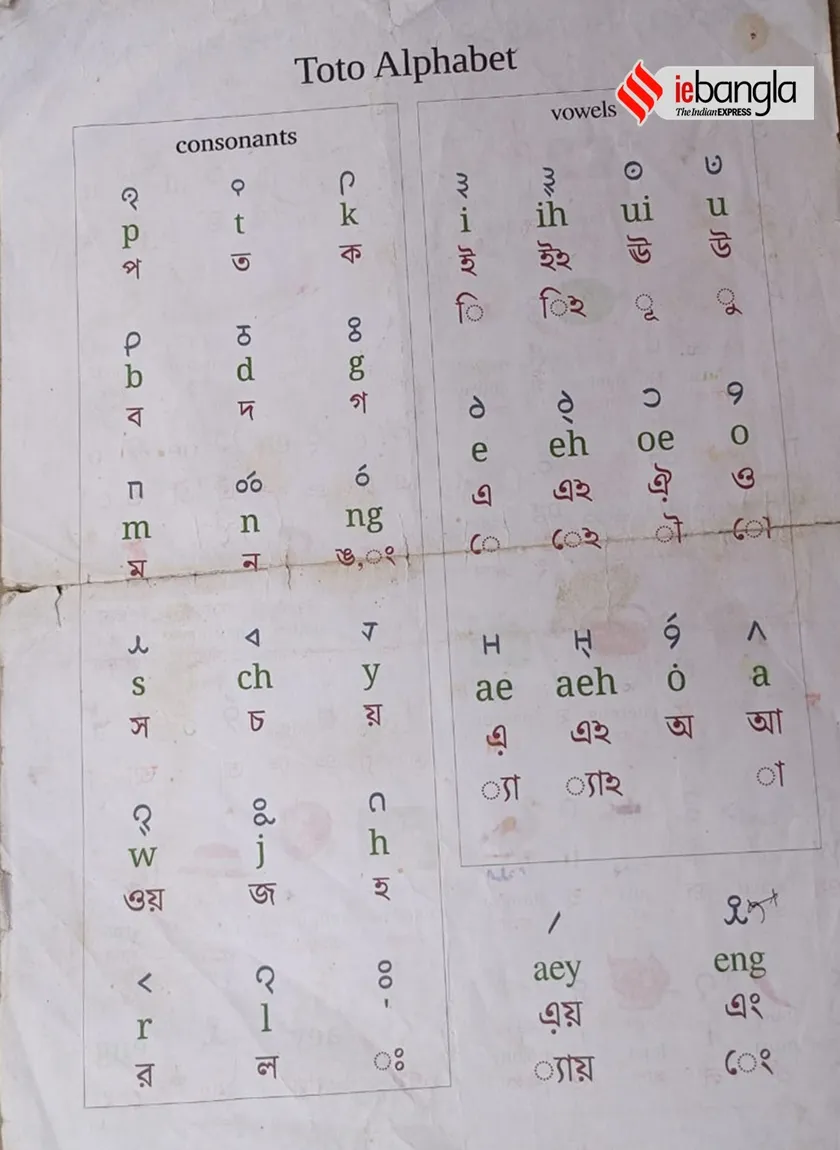 Toto Alphabet
iebangla
The Indian EXPRESS
consonants
𞊐 𞊒 𞊔
p t k
প ত ক
𞊑 𞊓 𞊕
b d g
ব দ গ
𞊖 𞊗 𞊘
m n ng
ম ন ঙ,ং
𞊙 𞊚 𞊛
s ch y
স চ য়
𞊜 𞊝 𞊞
w j h
ওয় জ হ
𞊟 𞊠
r l -
র ল ঃ
vowels
𞊡 𞊢 𞊣 𞊥
i ih ui u
ই ইহ ঊ উ
ি িহ ূ ু
𞊦 𞊧 𞊨 𞊪
e eh oe o
এ এহ ঐ় ও
ে েহ ৗ ো
𞊫 𞊬 𞊭
ae aeh ȯ a
এ় এহ অ আ
্যা ্যাহ া
aey eng
এ়য় এং
্যায় েং